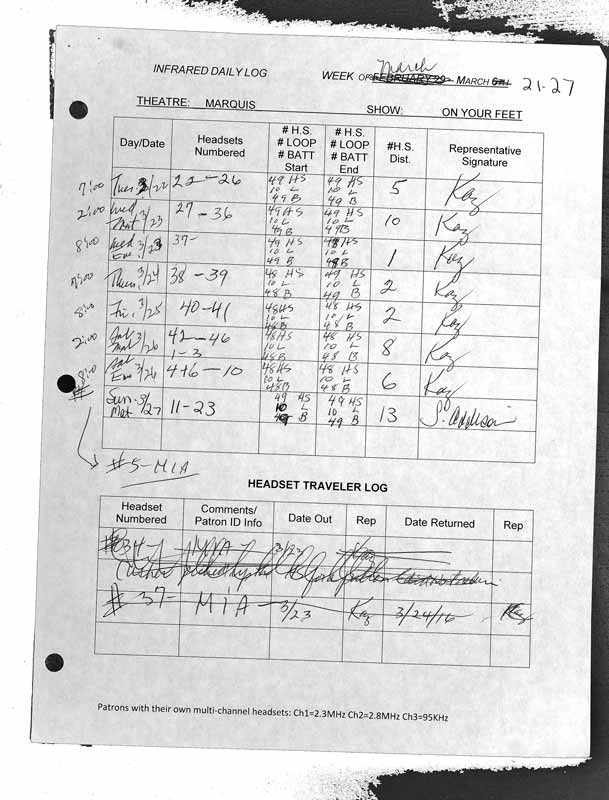 INFRARED DAILY LOG WEEK OF FEBRUARY 29 March MARCH 6TH 21-27
THEATRE: MARQUIS SHOW: ON YOUR FEET
Day/Date Headsets Numbered # H.S. # LOOP # BATT Start # H.S. # LOOP # BATT End #H.S. Dist. Representative Signature
7:00 Tues. 3/22 22-26 49 HS 10 L 49 B 49 HS 10 L 49 B 5 Kaz
2:00 Wed Mat 3/23 27-36 49 HS 10 L 49B 49 HS 10 L 49B 10 Kaz
8:00 Wed Ev. 3/23 37- 49 HS 10 L 49 B 48 HS 10 L 48 B 1 Kaz
7:00 Thurs. 3/24 38-39 48 HS 10 L 48 B 49 HS 10 L 49 B 2 Kaz
8:00 Fri. 3/25 40-41 48HS 10 L 48 B 48 HS 10 L 48 B 2 Kaz
2:00 Sat Mat 3/26 42-46 1-3 48HS 10 L 48B 48 HS 10 L 48 B 8 Kaz
8:00 Sat Ev 3/26 4+6-10 48 HS 10 L 48B 48 HS 10 L 48 B 6 Kaz
# Sun. Mat 3/27 11-23 49 HS 10 L 49 B 49 HS 10 L 49 B 13 S. Addison
#5-MIA
HEADSET TRAVELER LOG
Headset Numbered Comments/ Patron ID Info Date Out Rep Date Returned Rep
#34- MIA- 3/23 Kaz
picked up
# 37- MIA 3/23 Kaz 3/24/16 Kaz
Patrons with their own multi-channel headsets: Ch1=2.3MHz Ch2=2.8MHz Ch3=95KHz